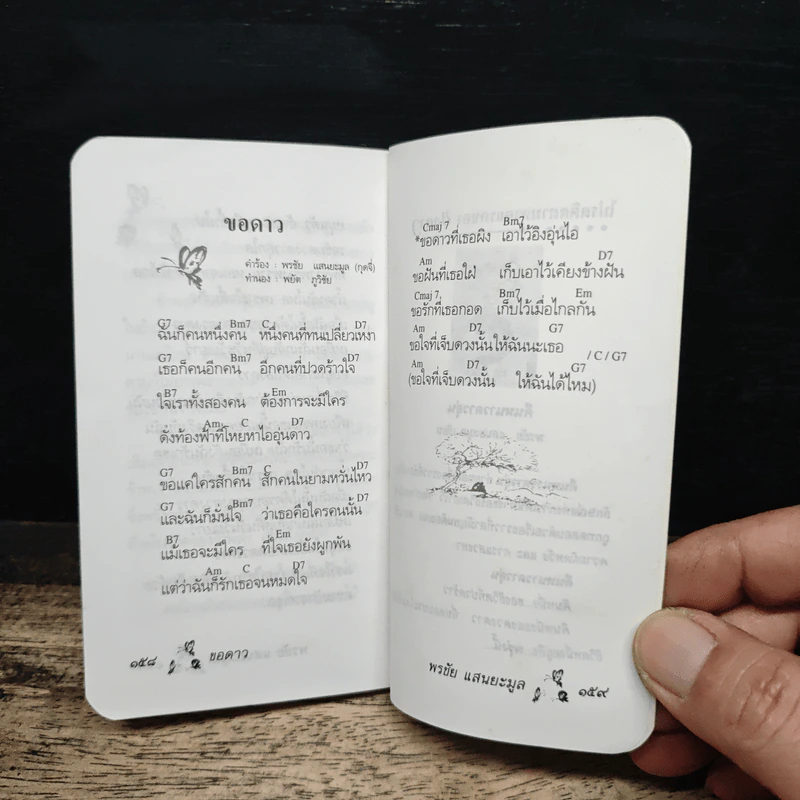 ขอดาว
คำร้อง : พรชัย แสนยะมูล (กุดจี่)
ทำนอง : พยัต ภูวิชัย
G7 Bm7 C D7
ฉันก็คนหนึ่งคน หนึ่งคนที่ทนเปลี่ยวเหงา
G7 Bm7 D7
เธอก็คนอีกคน อีกคนที่ปวดร้าวใจ
B7 Em
ใจเราทั้งสองคน ต้องการจะมีใคร
Am C D7
ดั่งท้องฟ้าที่โหยหาไออุ่นดาว
G7 Bm7 C D7
ขอแค่ใครสักคน สักคนในยามหวั่นไหว
G7 Bm7 D7
และฉันก็มั่นใจ ว่าเธอคือใครคนนั้น
B7 Em
แม้เธอจะมีใคร ที่ใจเธอยังผูกพัน
Am C D7
แต่ว่าฉันก็รักเธอจนหมดใจ
๑๕๘ ขอดาว
Cmaj 7 Bm7
*ขอดาวที่เธอผิง เอาไว้อิงอุ่นไอ
Am D7
ขอฝันที่เธอใฝ่ เก็บเอาไว้เคียงข้างฝัน
Cmaj 7 Bm7 Em
ขอรักที่เธอกอด เก็บไว้เมื่อไกลกัน
Am D7 G7
ขอใจที่เจ็บดวงนั้นให้ฉันนะเธอ
/ C / G7
Am D7 G7
(ขอใจที่เจ็บดวงนั้น ให้ฉันได้ไหม)
พรชัย แสนยะมูล ๑๕๙